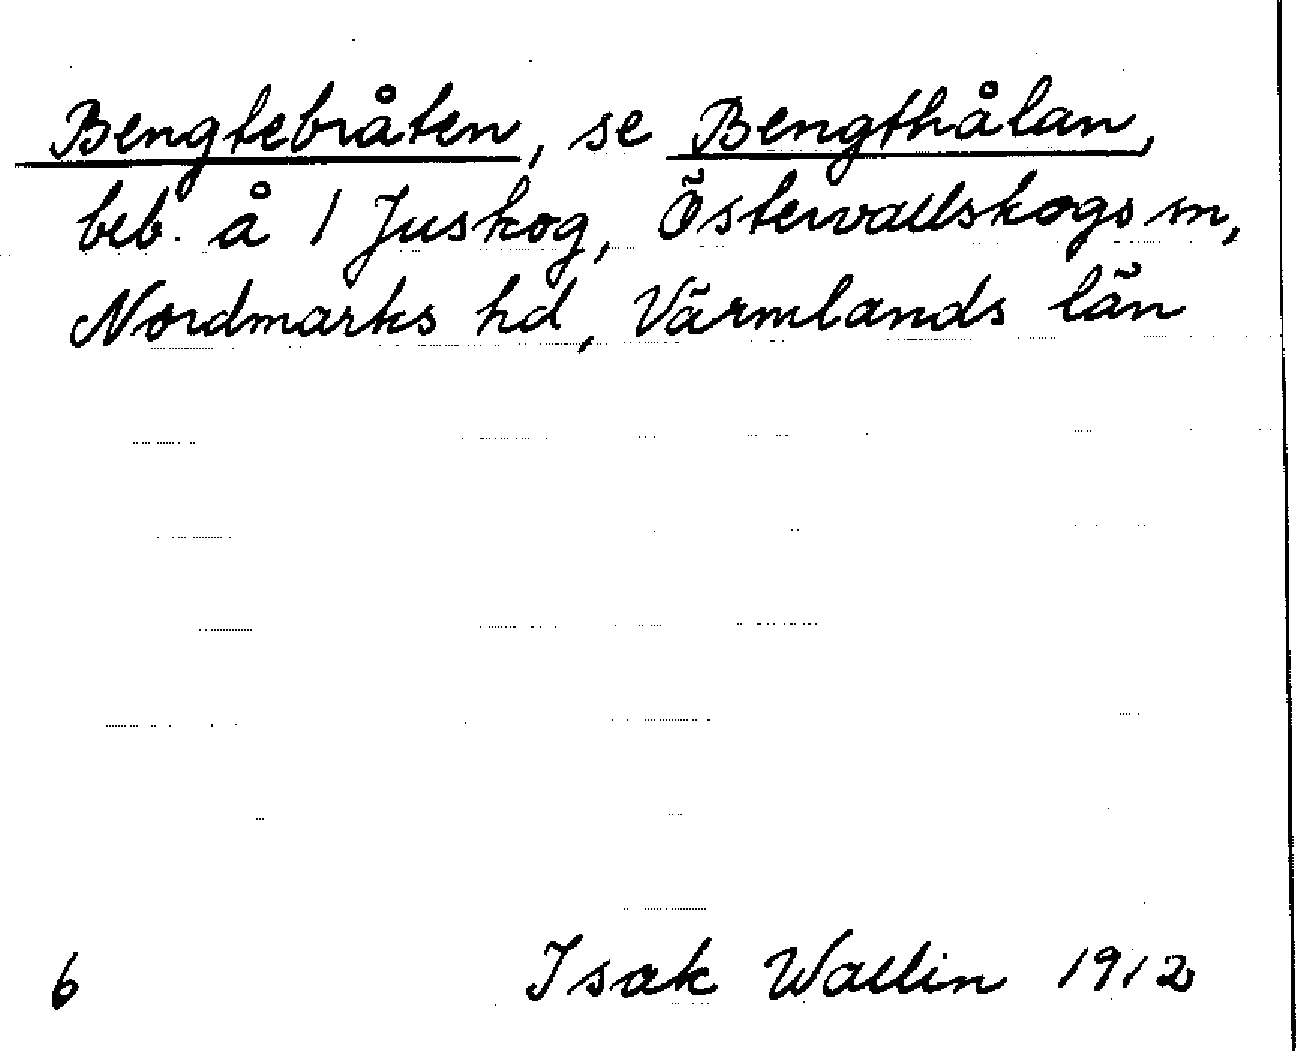 Bengtebråten, se Bengthålan,
beb. å 1 Juskog, Östervallskogs sn,
Nordmarks hd, Värmlands län
6 Isak Wallin 1912